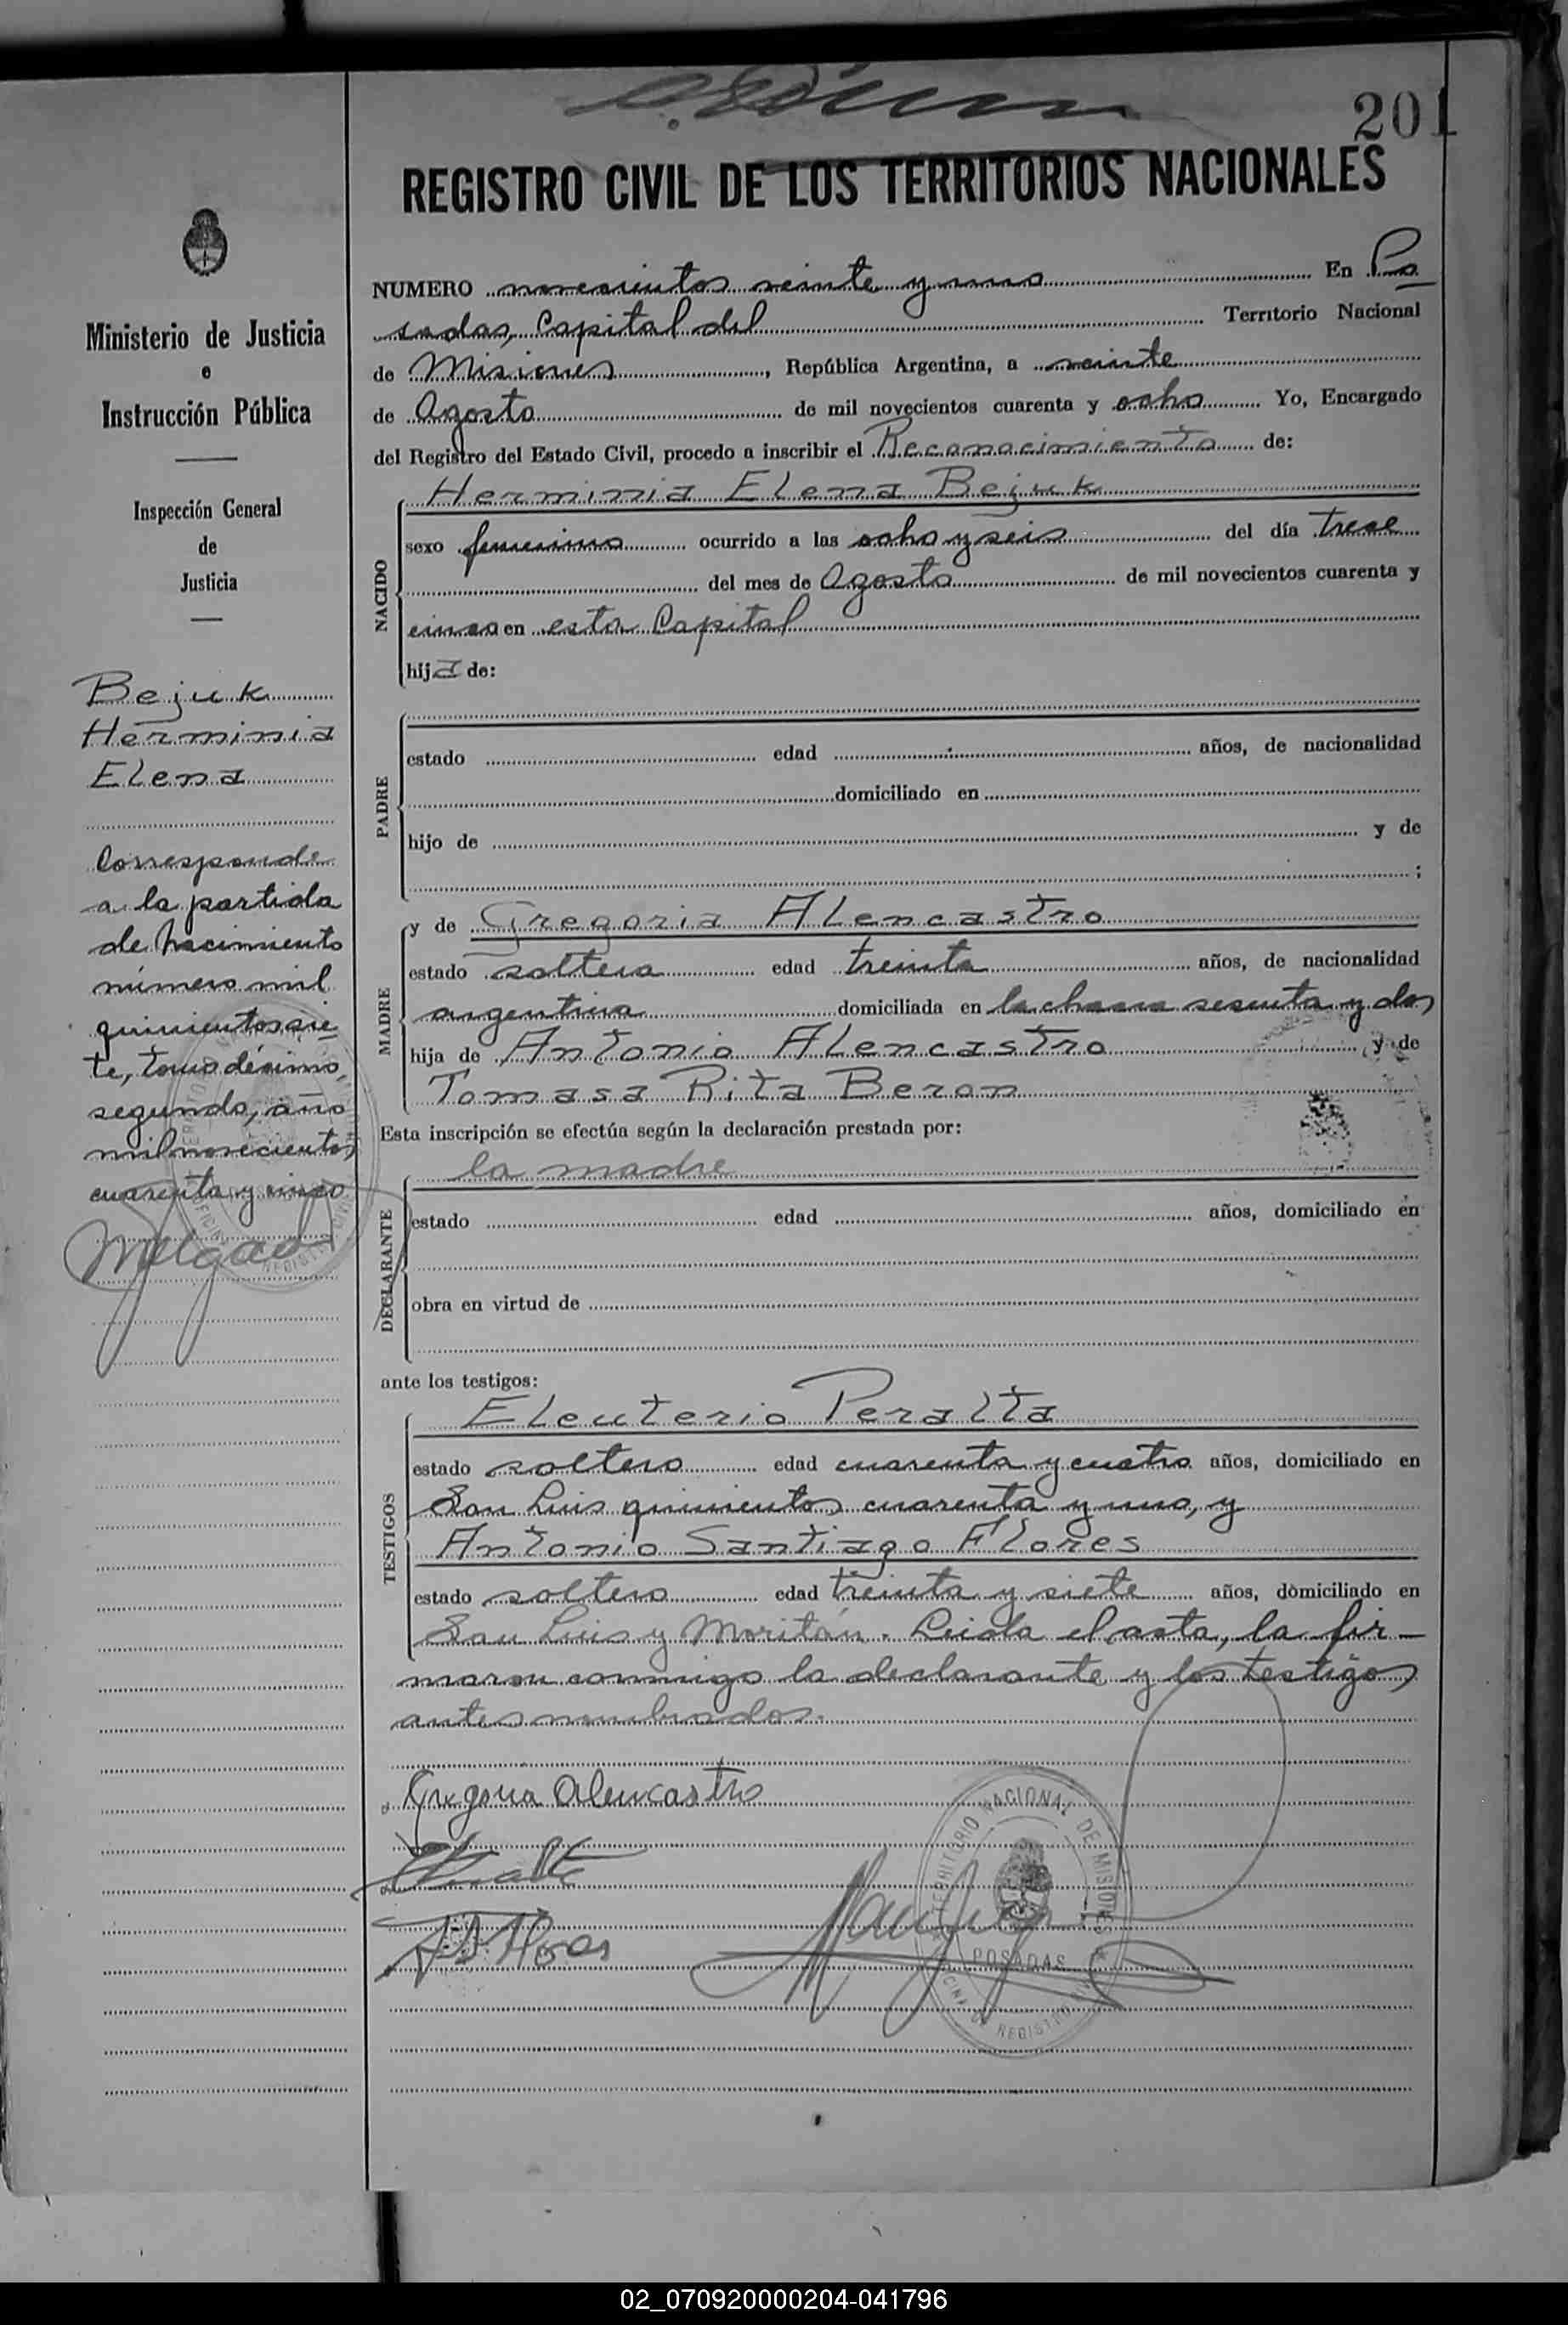 201
REGISTRO CIVIL DE LOS TERRITORIOS NACIONALES
Ministerio de Justicia
e
Instrucción Pública
Inspección General
de
Justicia
Bejuk
Herminia
Elena
Corresponde
a la partida
de nacimiento
número mil
quinientos sie-
te, tomo décimo
segundo, año
mil novecientos
cuarenta y cinco
NUMERO novecientos veinte y uno En Po
sadas, Capital del Territorio Nacional
de Misiones, República Argentina, a veinte
de Agosto de mil novecientos cuarenta y ocho Yo, Encargado
del Registro del Estado Civil, procedo a inscribir el Reconocimiento de:
Herminia Elena Bejuk
NACIDO
sexo femenino ocurrido a las ocho y seis del día trece
del mes de Agosto de mil novecientos cuarenta y
cinco en esta Capital
hija de:
PADRE
estado edad años, de nacionalidad
domiciliado en
hijo de y de
;
MADRE
y de Gregoria Alencastro
estado soltera edad treinta años, de nacionalidad
argentina domiciliada en la chacra sesenta y dos
hija de Antonio Alencastro y de
Tomasa Rita Beron
Esta inscripción se efectúa según la declaración prestada por:
la madre
DECLARANTE
estado edad años, domiciliado en
obra en virtud de
ante los testigos:
TESTIGOS
Eleuterio Peralta
estado soltero edad cuarenta y cuatro años, domiciliado en
San Luis quinientos cuarenta y uno, y
Antonio Santiago Flores
estado soltero edad treinta y siete años, domiciliado en
San Luis y Moritán. Leida el acta, la fir-
maron conmigo la declarante y los testigos
antes nombrados.
Gregoria Alencastro
TERRITORIO NACIONAL DE MISIONES
POSADAS
OFICINA DE REGISTRO CIVIL
02_070920000204-041796